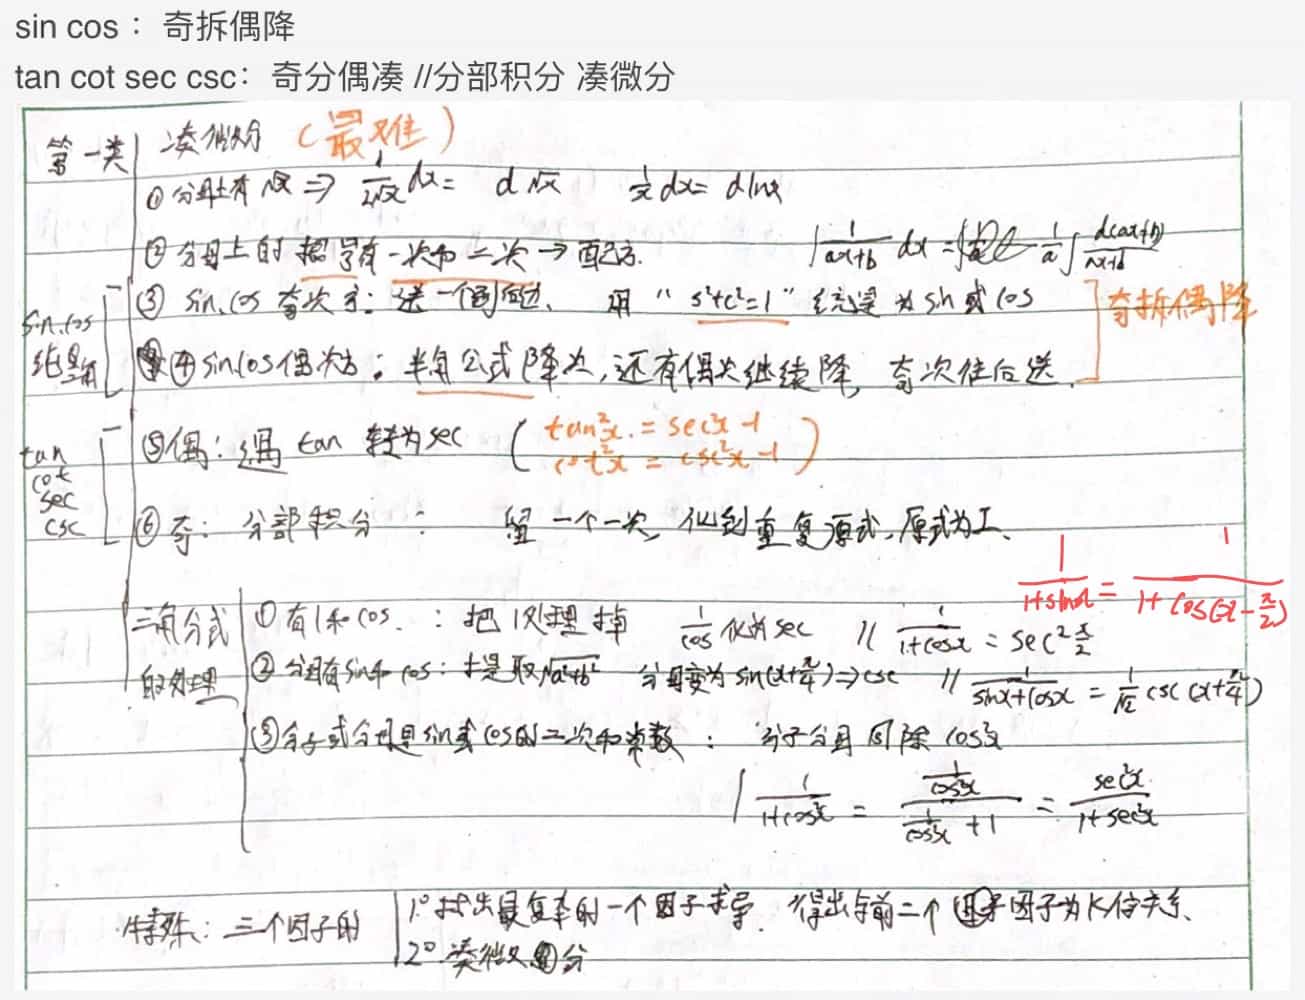 sin cos ： 奇拆偶降
tan cot sec csc： 奇分偶凑 //分部积分 凑微分
第一类 凑微分 （最难）
① 分母上有 √x ⇒ 1/(2√x) dx = d√x   1/x dx = dlnx
② 分母上的根号有一次和二次 → 配方.   ∫ 1/(ax+b) dx = 1/a ∫ d(ax+b)/(ax+b)
sin.cos ③ sin.cos 奇次方： 送一个到后边、 用 “s²+c²=1” 统一为 sin 或 cos   奇拆偶降
④ sin cos 偶次方： 半角公式降次，还有偶次继续降，奇次往后送.
tan cot sec csc ⑤ 偶：遇 tan 转为 sec   ( tan²x = sec²x -1
cot²x = csc²x -1 )
⑥ 奇： 分部积分 ： 留一个一次，化到重复原式，原式为I.
1/(1+sinx) = 1/(1+cos(x-π/2))
三角分式的处理 ① 有1和cos. ： 把1处理掉   1/cos 化为 sec   // 1/(1+cosx) = sec² x/2
② 分母有sin和cos： 提取√(a²+b²)   分母变为 sin(x+π/4) ⇒ csc   // 1/(sinx+cosx) = 1/√2 csc(x+π/4)
③ 分子或分母是sin或cos的二次和常数 ： 分子分母同除 cos²x
1/(1+cos²x) = (1/cos²x)/(1/cos²x + 1) = sec²x/(1+sec²x)
特殊： 三个因子的 1° 找出最复杂的一个因子求导. 得出与前二个因子为K倍关系、
2° 凑微分